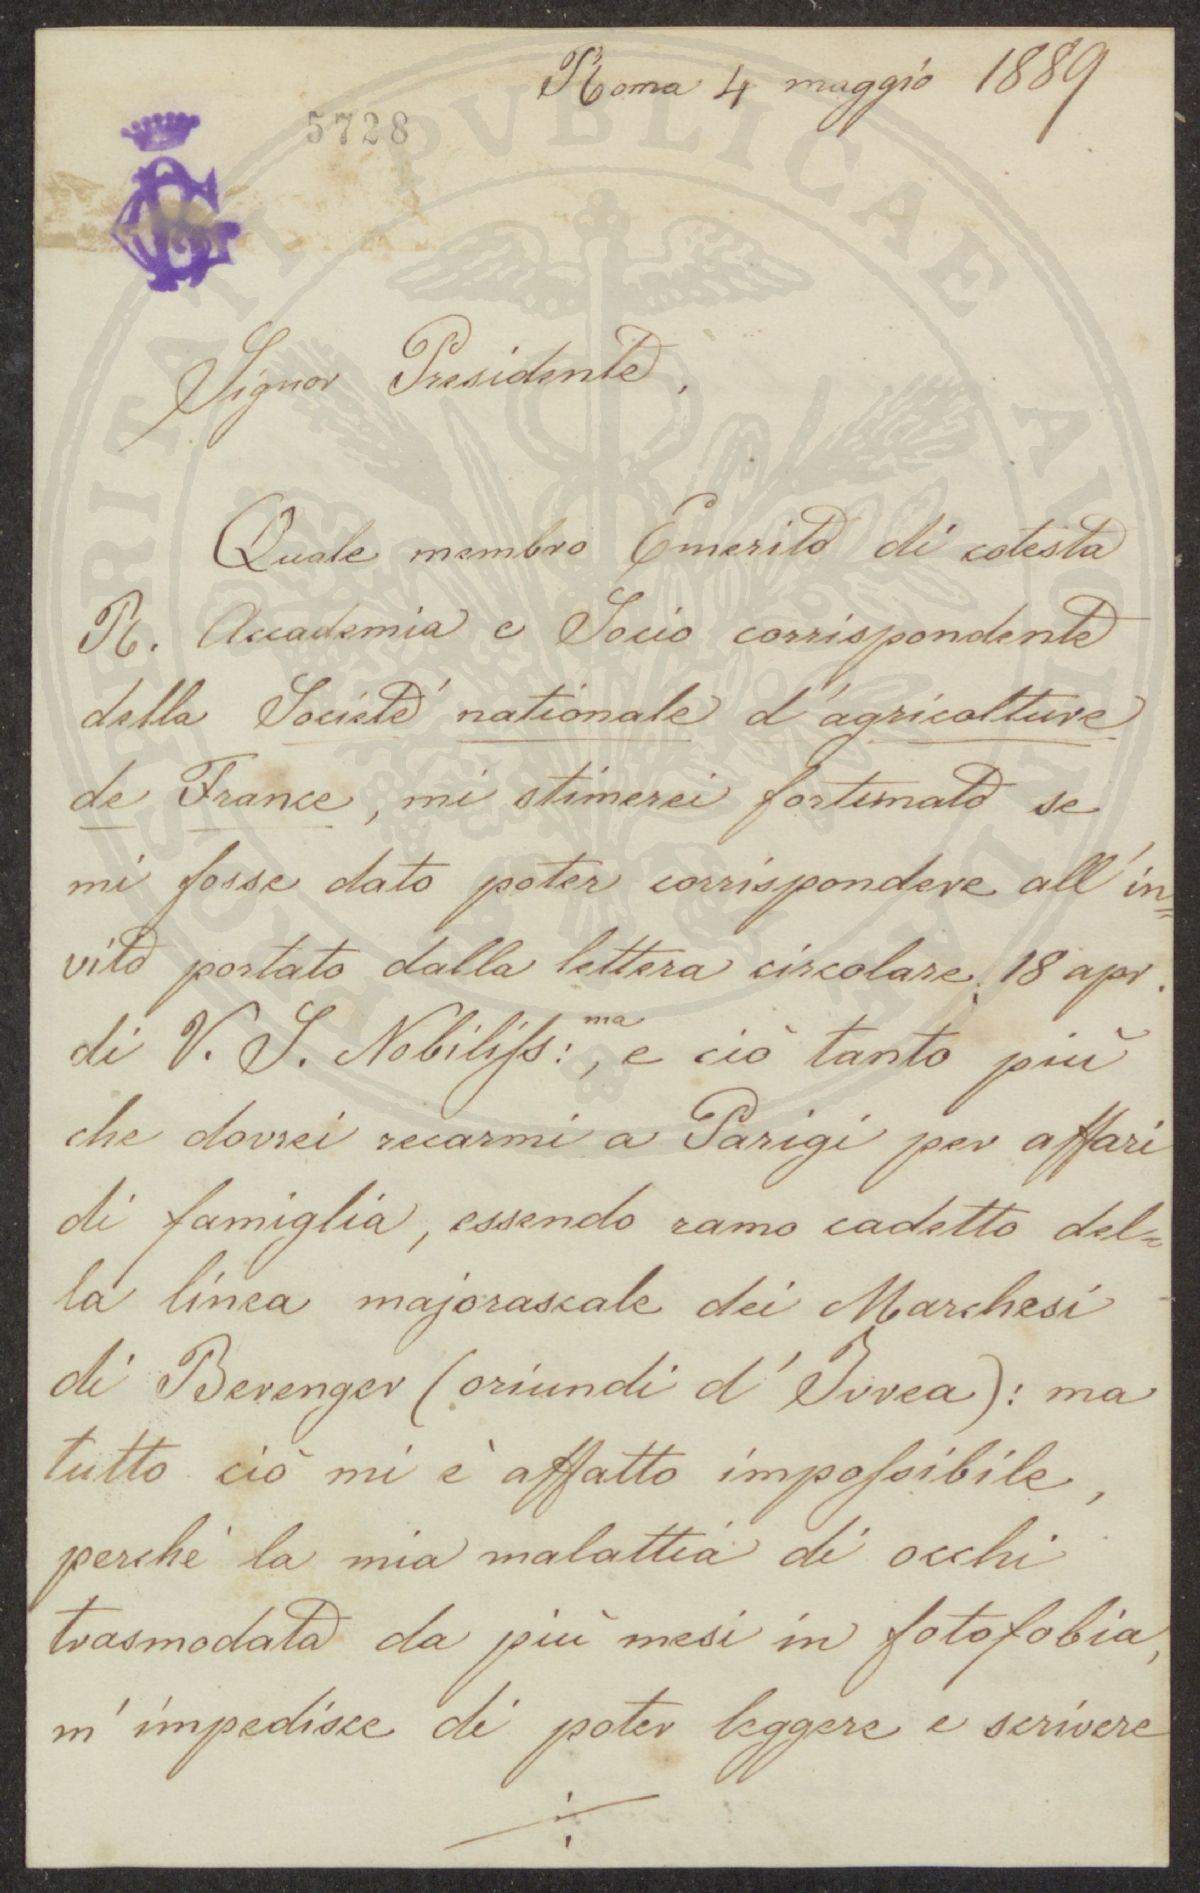 Roma 4 maggio 1889
5728
PROSPERITATI PVBLICAE AVGENDAE
Signor Presidente,
Quale membro Emerito di cotesta
R. Accademia e Socio corrispondente
della Societé nationale d'agricolture
de France, mi stimerei fortunato se
mi fosse dato poter corrispondere all'in=
vito portato dalla lettera circolare, 18 apr.
di V. S. Nobiliss:ma, e ciò tanto più
che dovrei recarmi a Parigi per affari
di famiglia, essendo ramo cadetto del=
la linea majorascale dei Marchesi
di Berenger (oriundi d'Ivrea): ma
tutto ciò mi è affatto impossibile,
perchè la mia malattia di occhi
trasmodata da più mesi in fotofobia,
m'impedisce di poter leggere e scrivere
./.